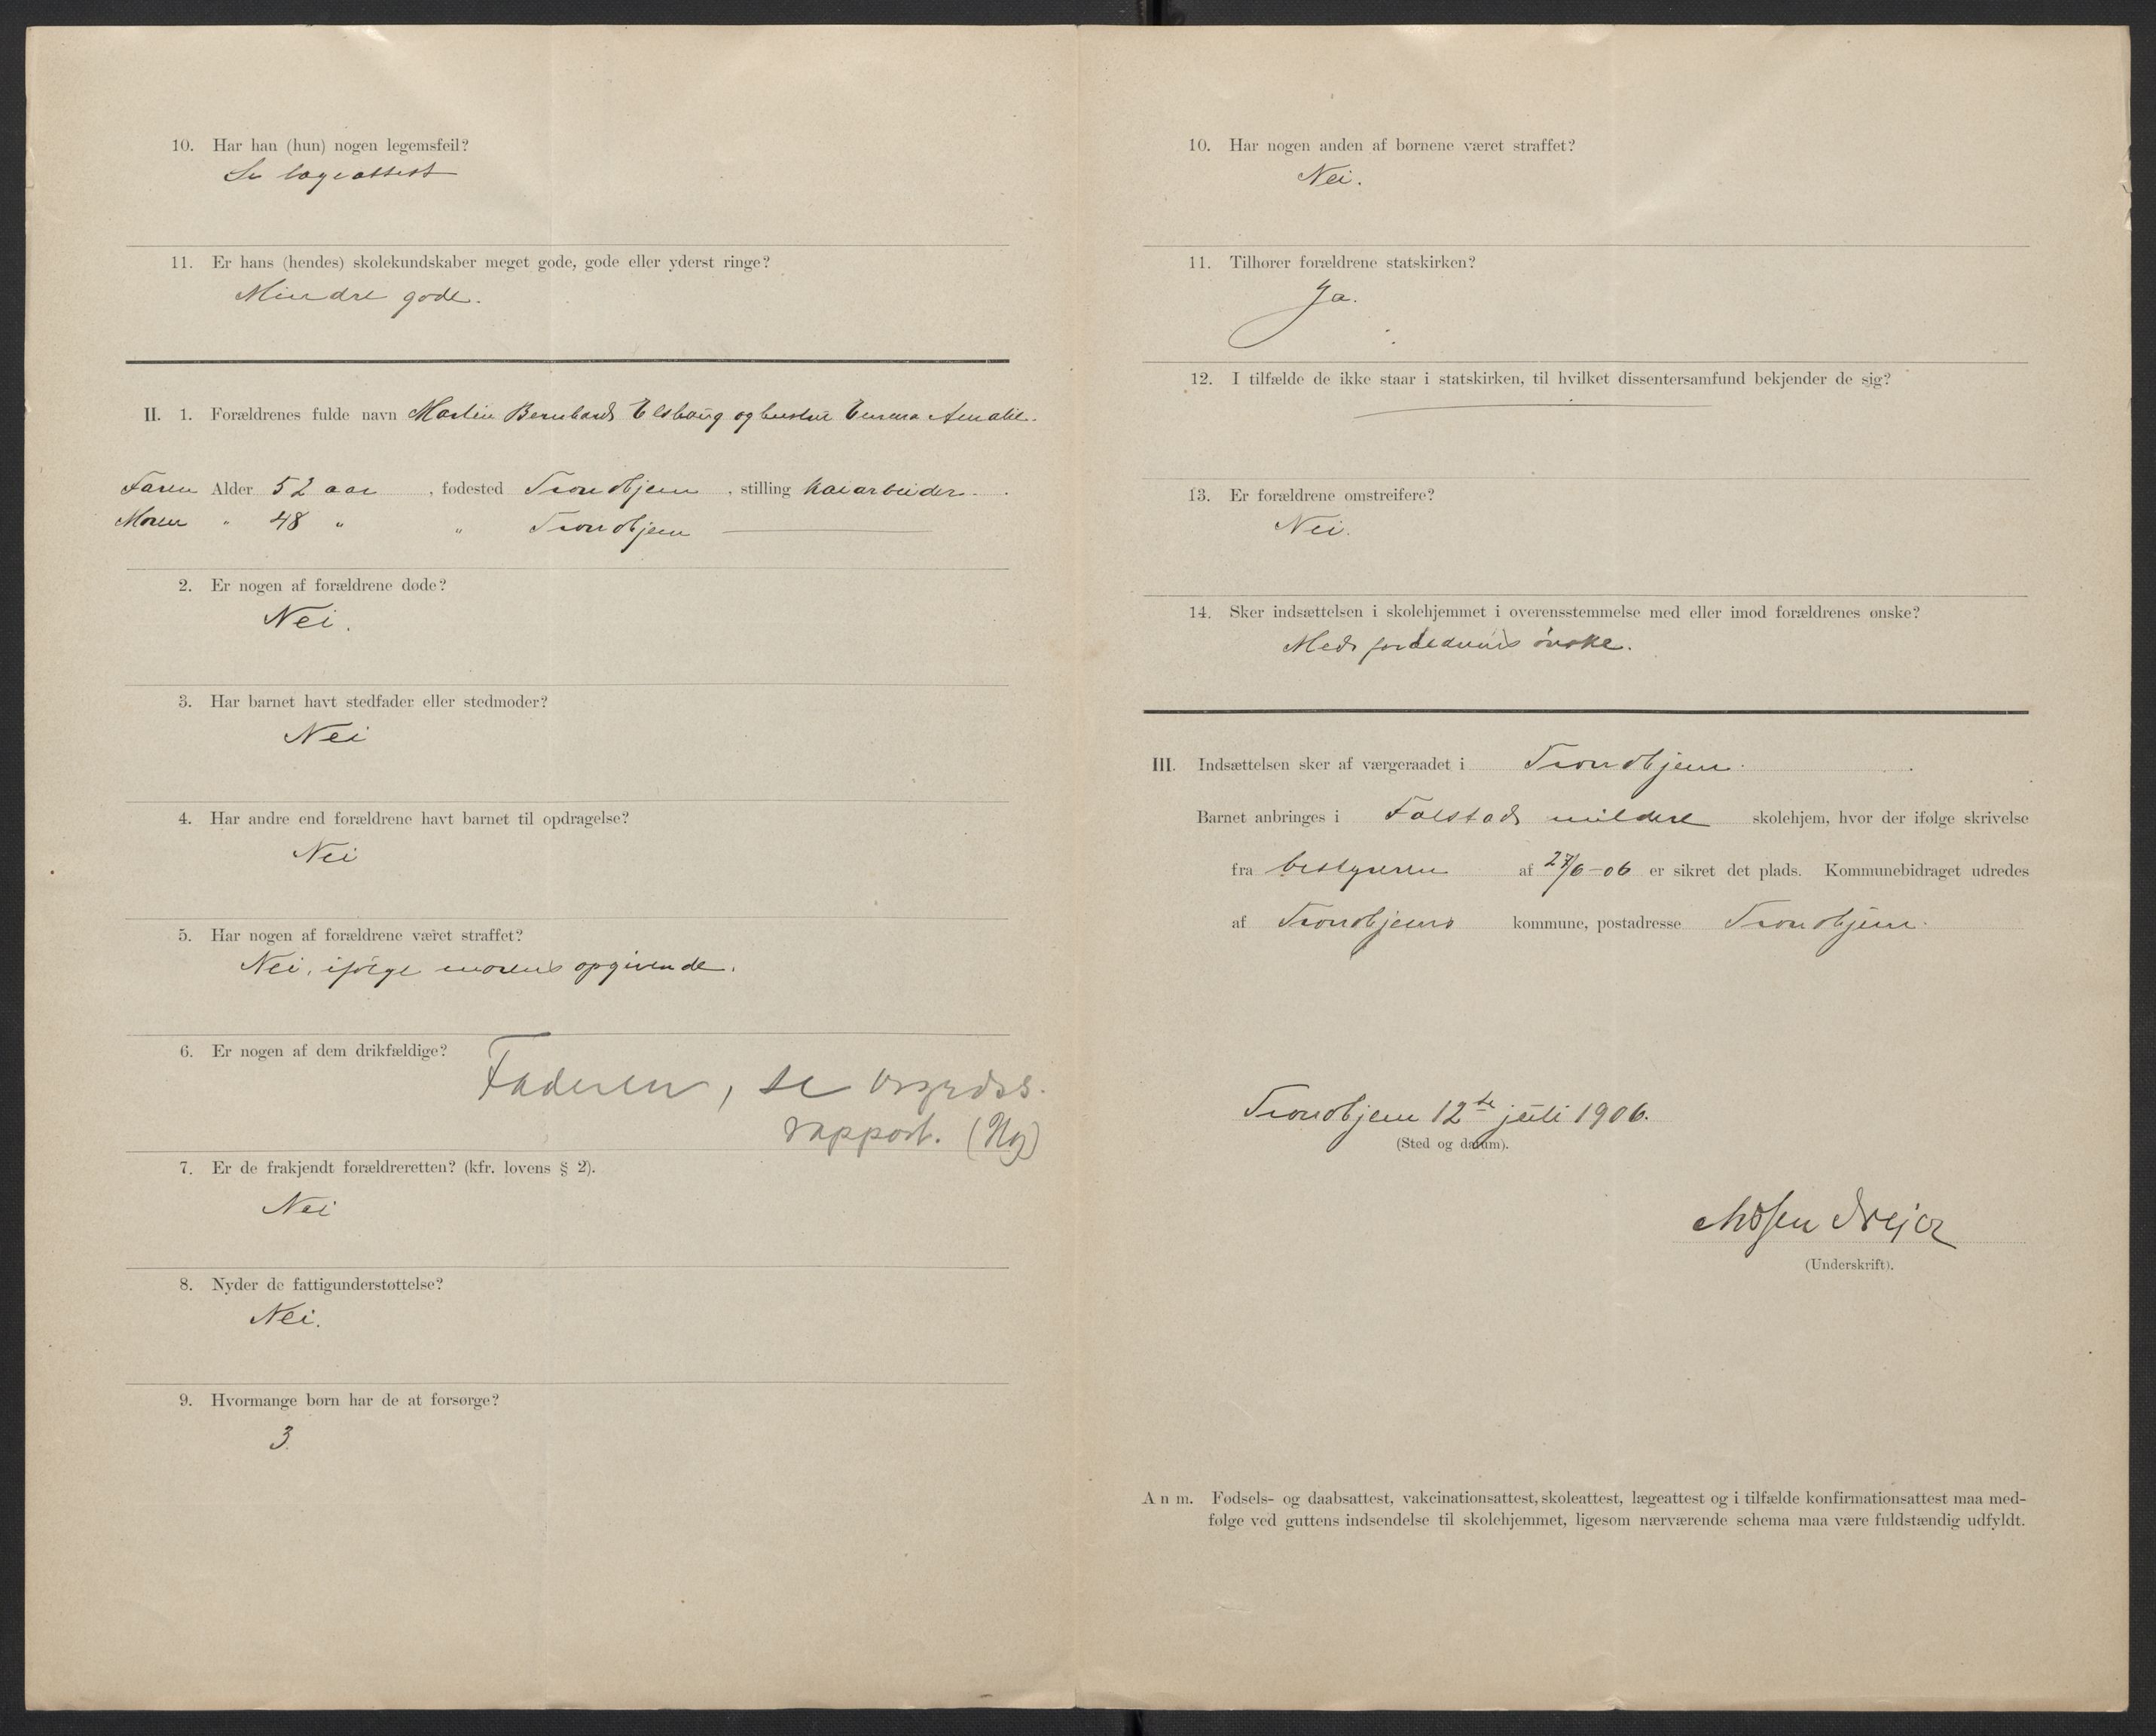 10. Har han (hun) nogen legemsfeil?
Se lægeattest
11. Er hans (hendes) skolekundskaber meget gode, gode eller yderst ringe?
Mindre gode.
II. 1. Forældrenes fulde navn Martin Bernhard Elshaug og hustru Emma Amalie.
Faren Alder 52 aar , fødested Trondhjem , stilling Kaiarbeider.
Moren " 48 " " Trondhjem
2. Er nogen af forældrene døde?
Nei.
3. Har barnet havt stedfader eller stedmoder?
Nei
4. Har andre end forældrene havt barnet til opdragelse?
Nei
5. Har nogen af forældrene været straffet?
Nei, ifølge morens opgivende.
6. Er nogen af dem drikfældige?
Faderen, se
rapport.
7. Er de frakjendt forældreretten? (kfr. lovens § 2).
Nei
8. Nyder de fattigunderstøttelse?
Nei.
9. Hvormange børn har de at forsørge?
3
10. Har nogen anden af børnene været straffet?
Nei.
11. Tilhører forældrene statskirken?
Ja.
12. I tilfælde de ikke staar i statskirken, til hvilket dissentersamfund bekjender de sig?
13. Er forældrene omstreifere?
Nei.
14. Sker indsættelsen i skolehjemmet i overensstemmelse med eller imod forældrenes ønske?
Med forældrenes ønske.
III. Indsættelsen sker af værgeraadet i Trondhjem.
Barnet anbringes i Falstad mildere skolehjem, hvor der ifølge skrivelse
fra bestyreren af 27/6-06 er sikret det plads. Kommunebidraget udredes
af Trondhjems kommune, postadresse Trondhjem.
Trondhjem 12te juli 1906.
(Sted og datum).
(Underskrift).
Anm. Fødsels- og daabsattest, vakcinationsattest, skoleattest, lægeattest og i tilfælde konfirmationsattest maa med-
følge ved guttens indsendelse til skolehjemmet, ligesom nærværende schema maa være fuldstændig udfyldt.